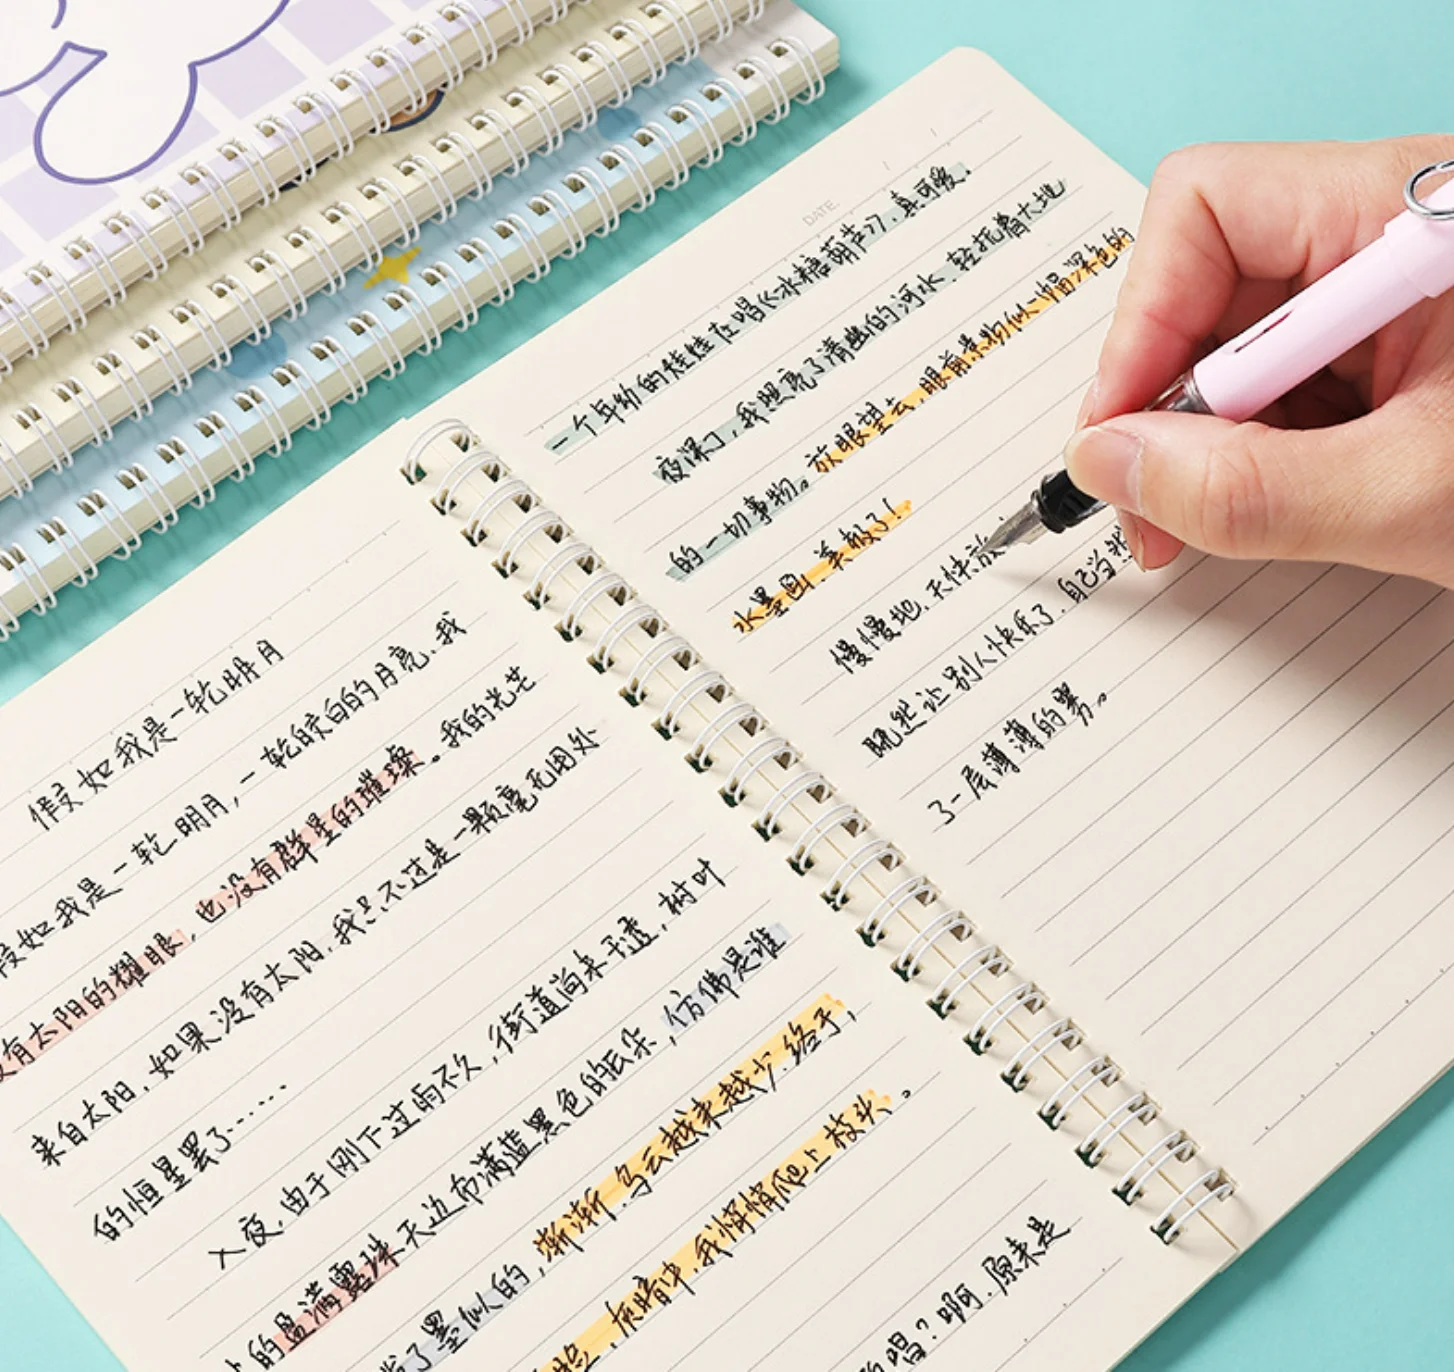 假如我是一轮明月
假如我是一轮明月，一轮皎白的月亮.我
没有太阳的耀眼，也没有群星的璀璨。我的光芒
来自太阳.如果没有太阳.我只不过是一颗毫无用处
的恒星罢了……
入夜.由于刚下过雨不久，街道尚未干透，树叶
上的盈满露珠天边布满蓝黑色的云朵，仿佛是谁
了墨似的，渐渐.乌云越来越少.终于，
灰暗中.我悄悄爬上枝头。
唱？啊.原来是
DATE.
一个年幼的娃娃在唱《冰糖葫芦》.真可爱.
夜深了，我照亮了清幽的河水.轻抚着大地
的一切事物。放眼望去.眼前景物似一幅深色的
水墨画.美极了！
慢慢地.天快放
既然让别人快乐了.自己当然
了一层薄薄的雾。